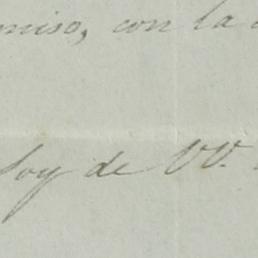 miso, con la
Soy de VV.